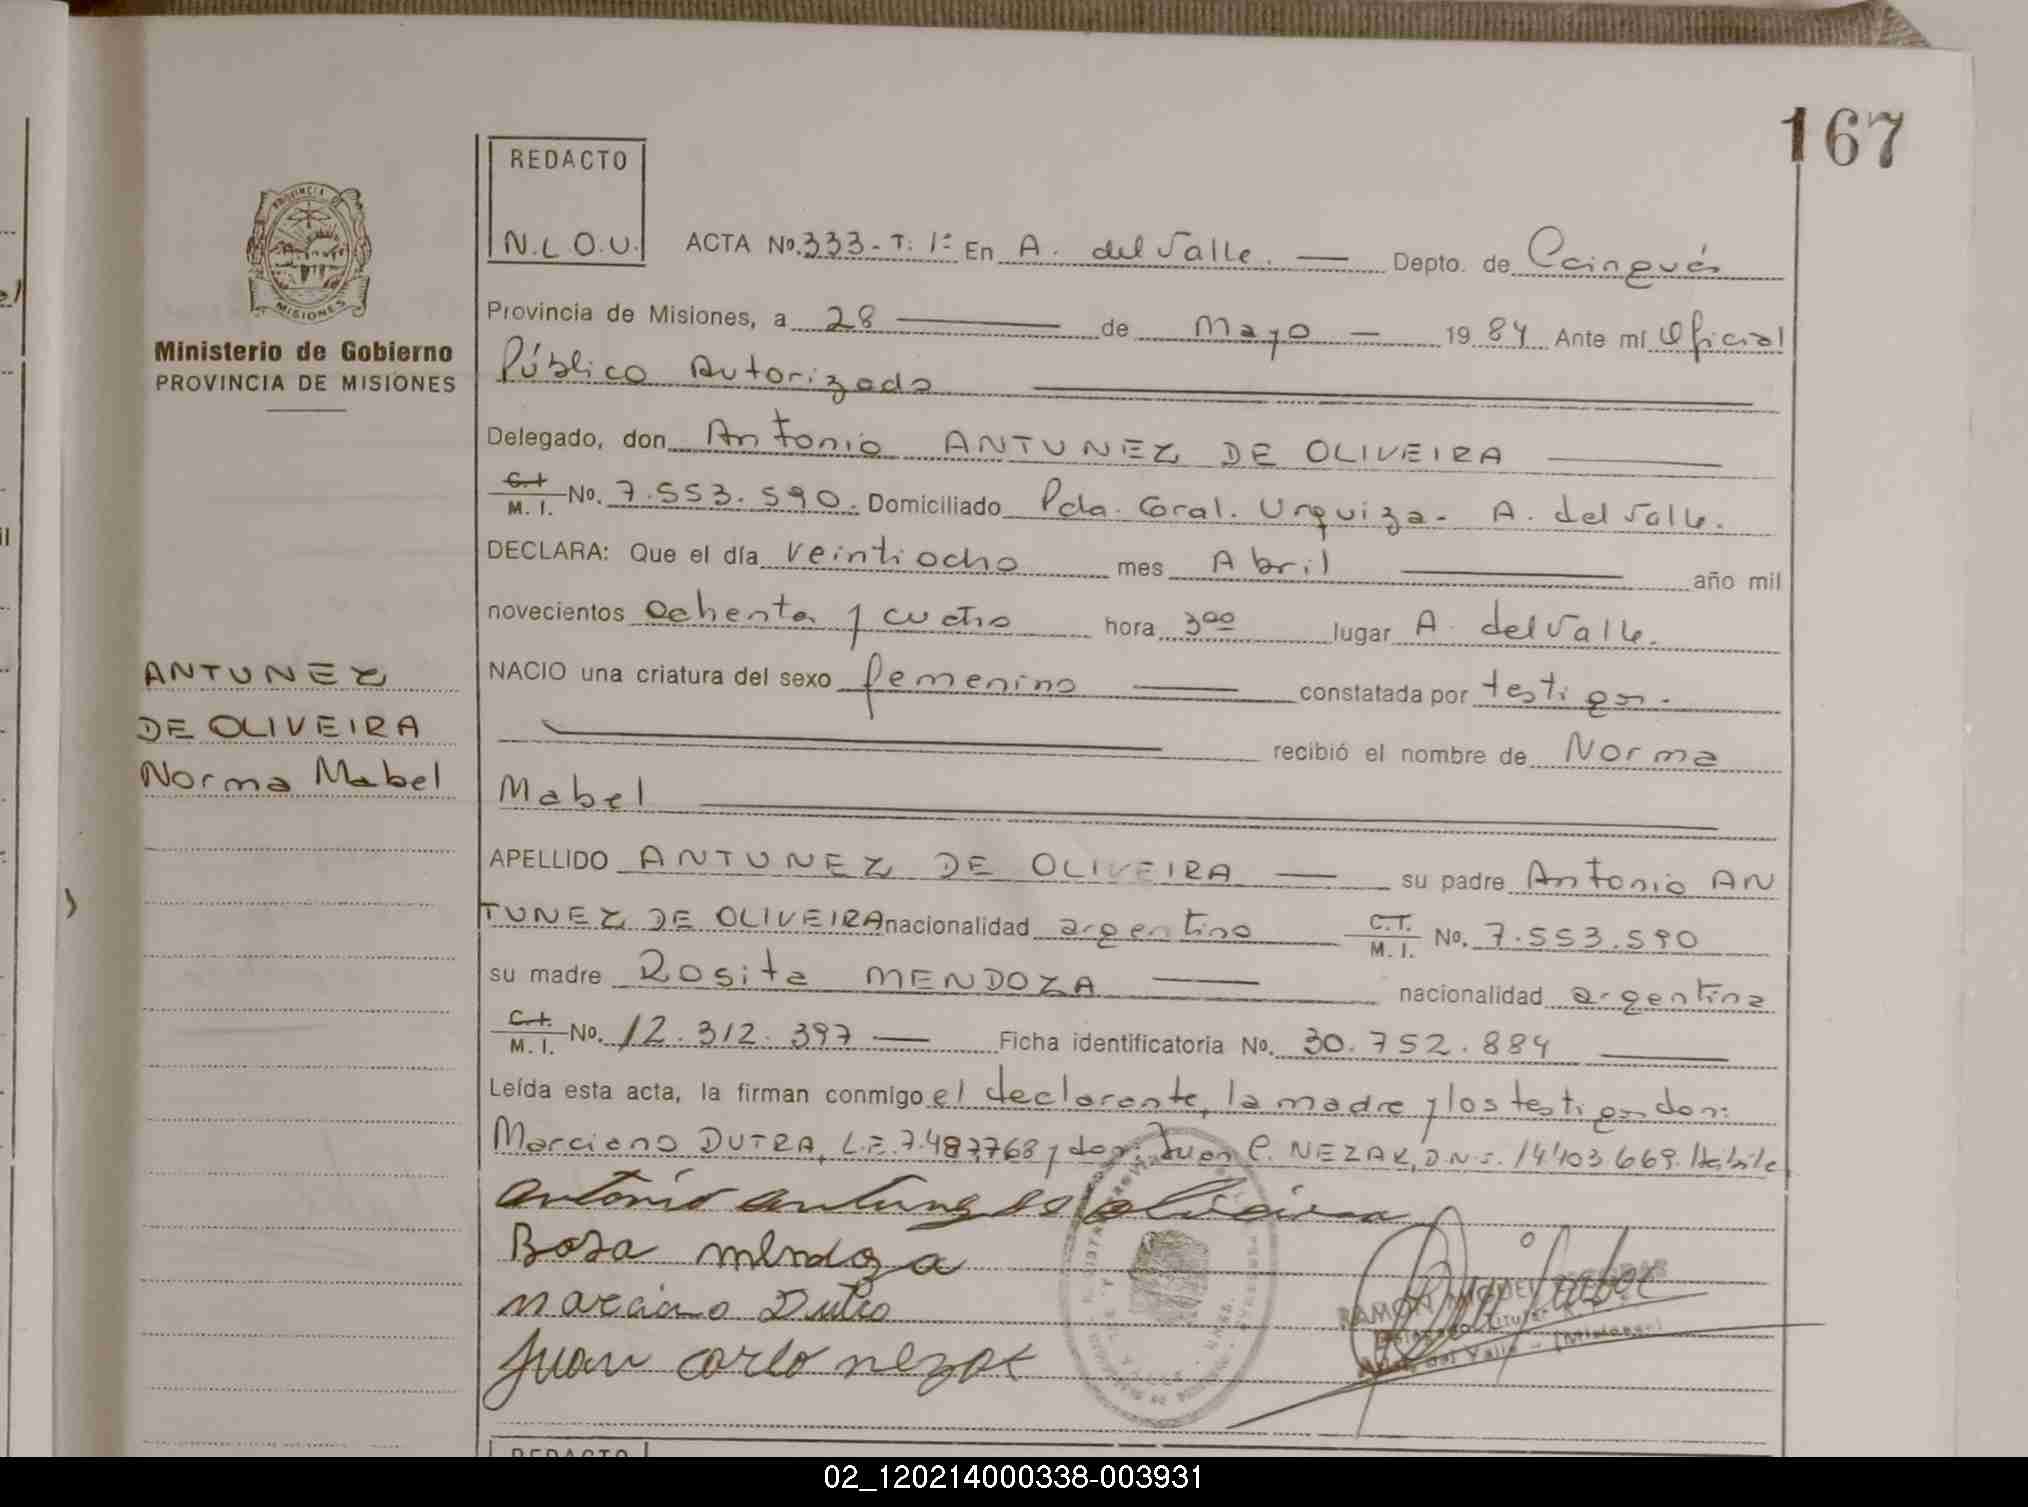 167
REDACTO
N.L.O.U.
ACTA No. 333 - T: 1º En A. del Valle. — Depto. de Cainguás
Provincia de Misiones, a 28 — de Mayo — 1984 Ante mí Oficial
Público Autorizado
Delegado, don Antonio ANTUNEZ DE OLIVEIRA
C.I. M. I. No. 7.553.590. Domiciliado Pda. Gral. Urquiza - A. del Valle.
DECLARA: Que el día veintiocho mes Abril año mil
novecientos ochenta y cuatro hora 3 00 lugar A. del Valle.
NACIO una criatura del sexo femenino — constatada por testigos.
recibió el nombre de Norma
Mabel
APELLIDO ANTUNEZ DE OLIVEIRA — su padre Antonio AN
TUNEZ DE OLIVEIRA nacionalidad argentino C.T. M. I. No. 7.553.590
su madre Rosita MENDOZA — nacionalidad argentina
C.I. M. I. No. 12.312.397 — Ficha identificatoria No. 30.752.884
Leída esta acta, la firman conmigo el declarante, la madre y los testigos don:
Marciano DUTRA, L.E. 7.487.768 y don: Juan C. NEZAK, D.N.I. 14403669. Hábile
antonio antunez de oliveira
Rosa mendoza
marciano Dutra
Juan carlo nezak
RAMON MIGUEL
del Valle - (Misiones)
PROVINCIA DE
MISIONES
Ministerio de Gobierno
PROVINCIA DE MISIONES
ANTUNEZ
DE OLIVEIRA
Norma Mabel
REDACTO
02_120214000338-003931